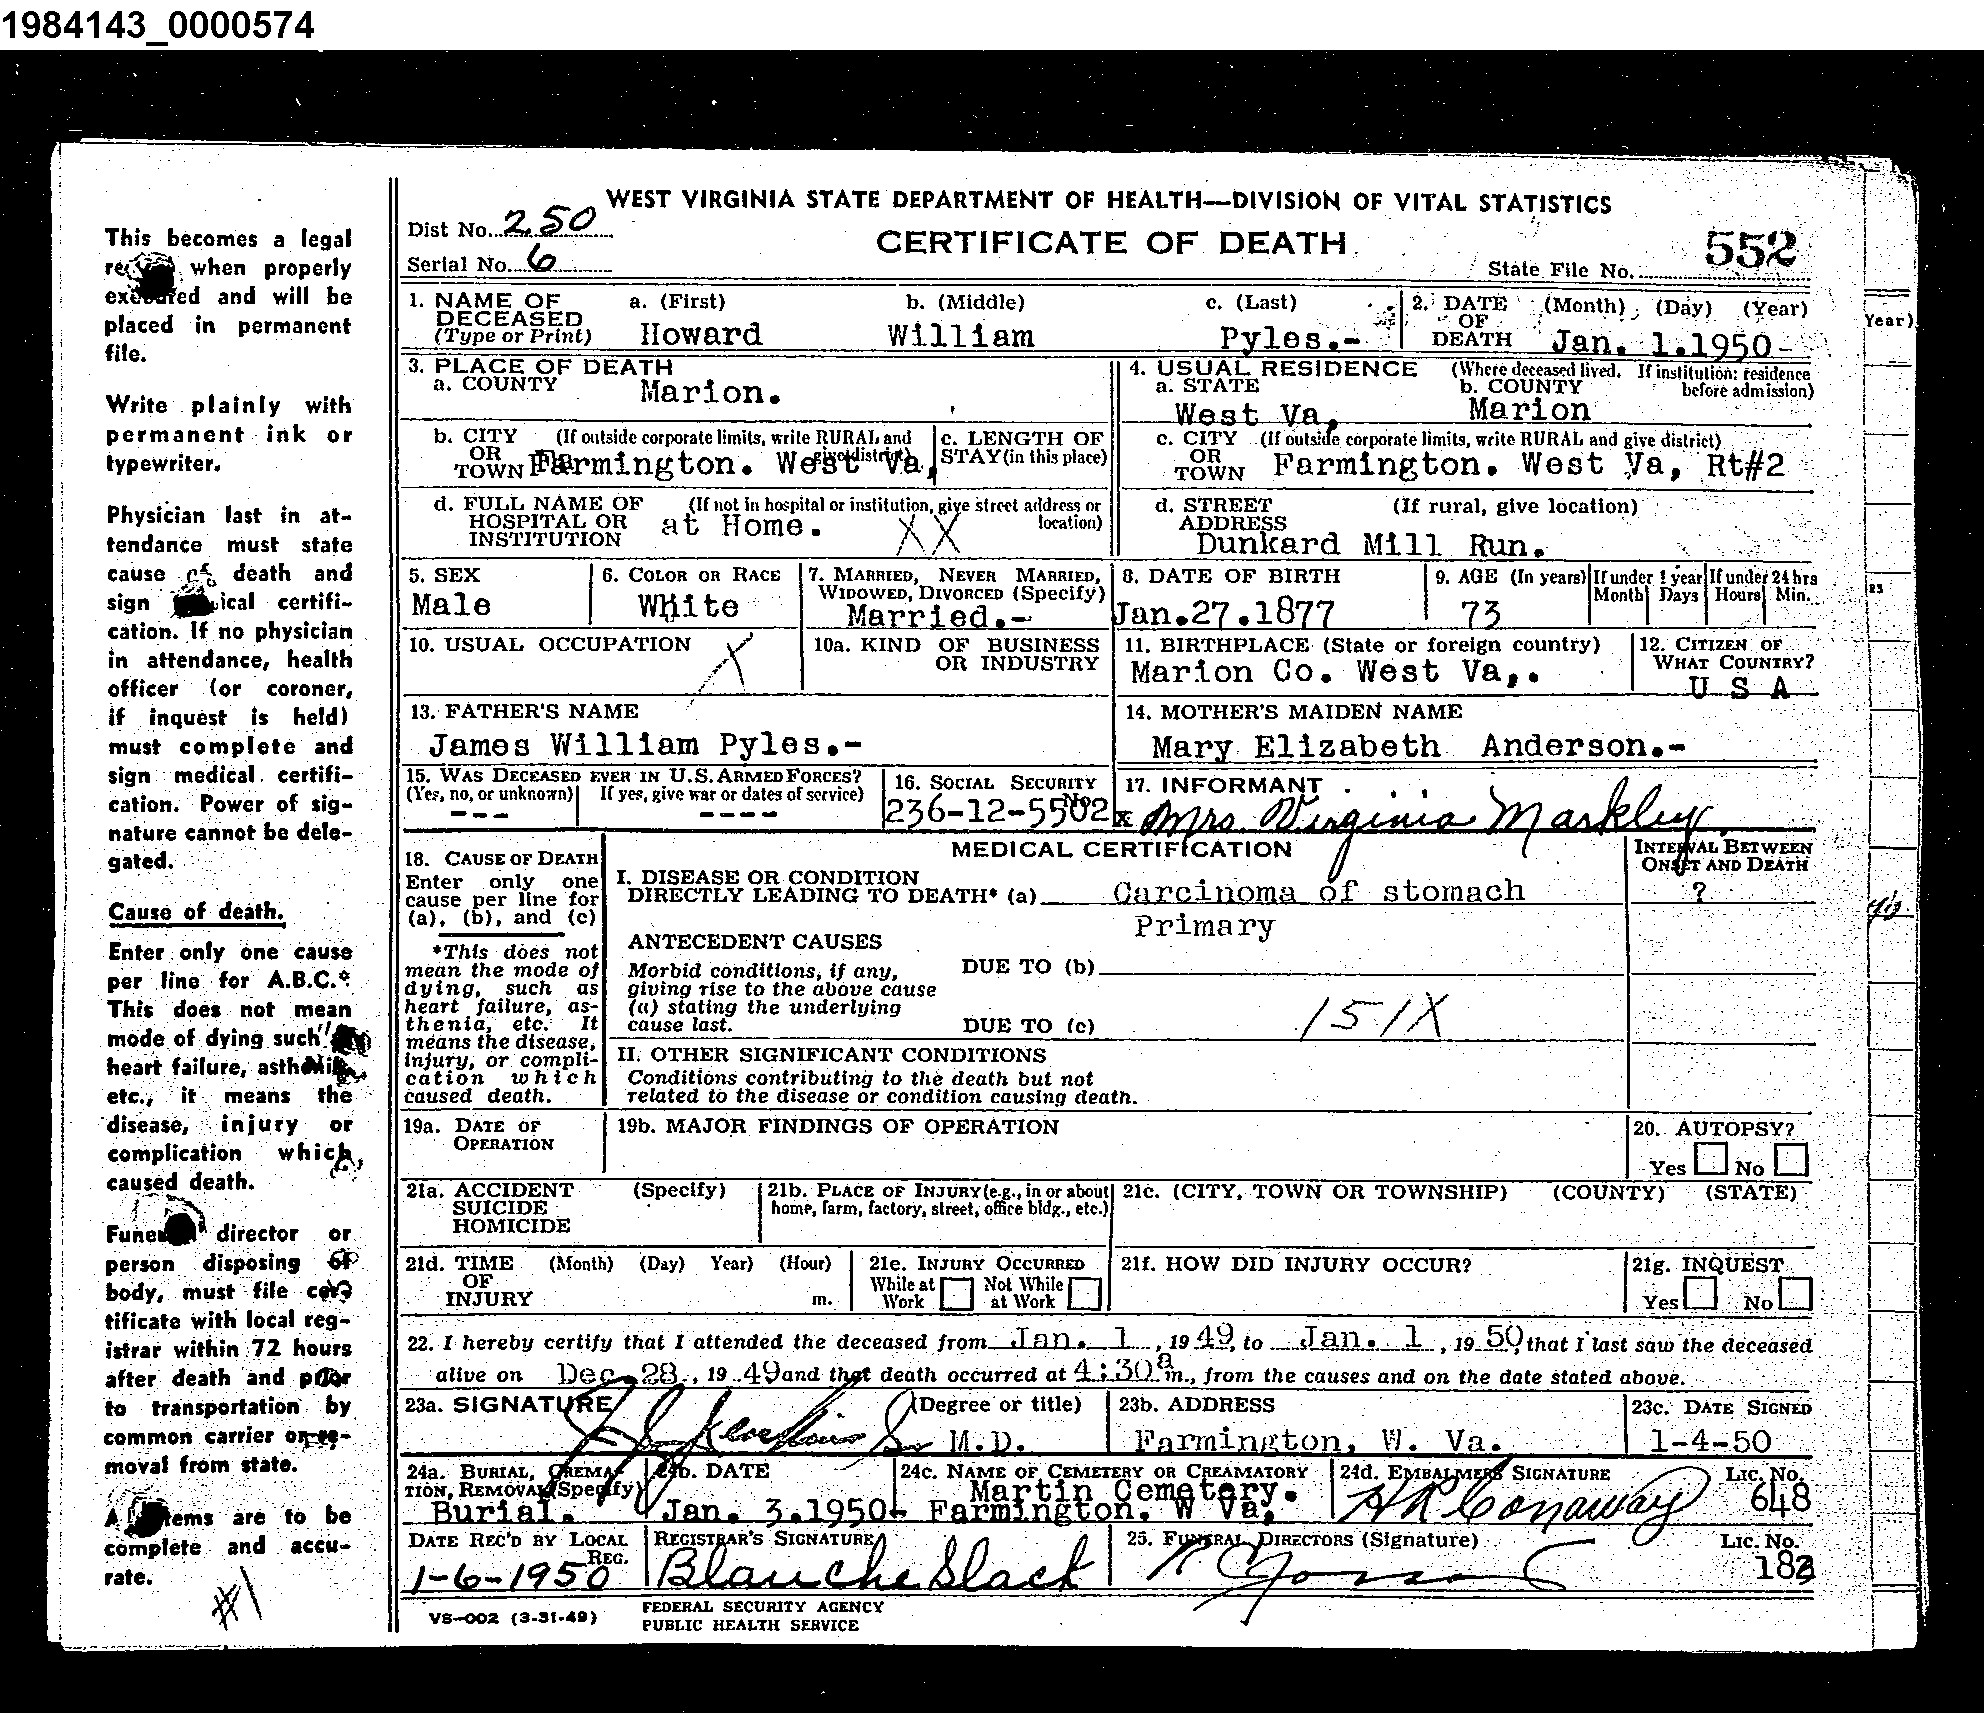 1984143_0000574
This becomes a legal
when properly
executed and will be
placed in permanent
file.
Write plainly with
permanent ink or
typewriter.
Physician last in at-
tendance must state
cause of death and
sign medical certifi-
cation. If no physician
in attendance, health
officer (or coroner,
if inquest is held)
must complete and
sign medical certifi-
cation. Power of sig-
nature cannot be dele-
gated.
Cause of death.
Enter only one cause
per line for A.B.C.*
This does not mean
mode of dying such
heart failure, asthenia,
etc., it means the
disease, injury or
complication which
caused death.
Funeral director or
person disposing of
body, must file cer-
tificate with local reg-
istrar within 72 hours
after death and prior
to transportation by
common carrier or re-
moval from state.
All items are to be
complete and accu-
rate.
#1
WEST VIRGINIA STATE DEPARTMENT OF HEALTH—DIVISION OF VITAL STATISTICS
Dist No. 250
CERTIFICATE OF DEATH
Serial No. 6
State File No. 552
1. NAME OF DECEASED (Type or Print) a. (First) Howard b. (Middle) William c. (Last) Pyles.-
2. DATE OF DEATH (Month) (Day) (Year) Jan. 1.1950-
Year)
3. PLACE OF DEATH
a. COUNTY Marion.
4. USUAL RESIDENCE (Where deceased lived. If institution: residence before admission)
a. STATE West Va, b. COUNTY Marion
b. CITY OR TOWN (If outside corporate limits, write RURAL and give district) Farmington. West Va,
c. LENGTH OF STAY (in this place)
c. CITY OR TOWN (If outside corporate limits, write RURAL and give district) Farmington. West Va, Rt#2
d. FULL NAME OF HOSPITAL OR INSTITUTION (If not in hospital or institution, give street address or location) at Home. XX
d. STREET ADDRESS (If rural, give location) Dunkard Mill Run.
5. SEX Male
6. COLOR OR RACE White
7. MARRIED, NEVER MARRIED, WIDOWED, DIVORCED (Specify) Married.-
8. DATE OF BIRTH Jan.27.1877
9. AGE (In years) 73 If under 1 year Month Days If under 24 hrs Hours Min.
10. USUAL OCCUPATION X
10a. KIND OF BUSINESS OR INDUSTRY
11. BIRTHPLACE (State or foreign country) Marion Co. West Va,.
12. CITIZEN OF WHAT COUNTRY? U S A
13. FATHER'S NAME
James William Pyles.-
14. MOTHER'S MAIDEN NAME
Mary Elizabeth Anderson.-
15. WAS DECEASED EVER IN U.S. ARMED FORCES?
(Yes, no, or unknown) --- If yes, give war or dates of service) ----
16. SOCIAL SECURITY No. 236-12-5502x
17. INFORMANT Mrs. Virginia Markley
18. CAUSE OF DEATH
Enter only one
cause per line for
(a), (b), and (c)
*This does not
mean the mode of
dying, such as
heart failure, as-
thenia, etc. It
means the disease,
injury, or compli-
cation which
caused death.
MEDICAL CERTIFICATION
INTERVAL BETWEEN ONSET AND DEATH
I. DISEASE OR CONDITION
DIRECTLY LEADING TO DEATH* (a) Carcinoma of stomach ?
Primary
ANTECEDENT CAUSES
Morbid conditions, if any,
giving rise to the above cause
(a) stating the underlying
cause last.
DUE TO (b)
DUE TO (c) 151X
II. OTHER SIGNIFICANT CONDITIONS
Conditions contributing to the death but not
related to the disease or condition causing death.
19a. DATE OF OPERATION
19b. MAJOR FINDINGS OF OPERATION
20. AUTOPSY?
Yes No
21a. ACCIDENT SUICIDE HOMICIDE (Specify)
21b. PLACE OF INJURY (e.g., in or about home, farm, factory, street, office bldg., etc.)
21c. (CITY, TOWN OR TOWNSHIP) (COUNTY) (STATE)
21d. TIME OF INJURY (Month) (Day) Year) (Hour) m.
21e. INJURY OCCURRED While at Work Not While at Work
21f. HOW DID INJURY OCCUR?
21g. INQUEST
Yes No
22. I hereby certify that I attended the deceased from Jan. 1, 1949, to Jan. 1, 1950, that I last saw the deceased
alive on Dec. 28, 1949 and that death occurred at 4:30a m., from the causes and on the date stated above.
23a. SIGNATURE (Degree or title) M.D.
23b. ADDRESS Farmington, W. Va.
23c. DATE SIGNED 1-4-50
24a. BURIAL, CREMATION, REMOVAL (Specify) Burial.
24b. DATE Jan. 3.1950-
24c. NAME OF CEMETERY OR CREAMATORY Martin Cemetery. Farmington. W Va,
24d. EMBALMERS SIGNATURE Conaway Lic. No. 648
DATE REC'D BY LOCAL REG. 1-6-1950
REGISTRAR'S SIGNATURE Blanche Slack
25. FUNERAL DIRECTORS (Signature) Lic. No. 183
VS-002 (3-31-49)
FEDERAL SECURITY AGENCY
PUBLIC HEALTH SERVICE